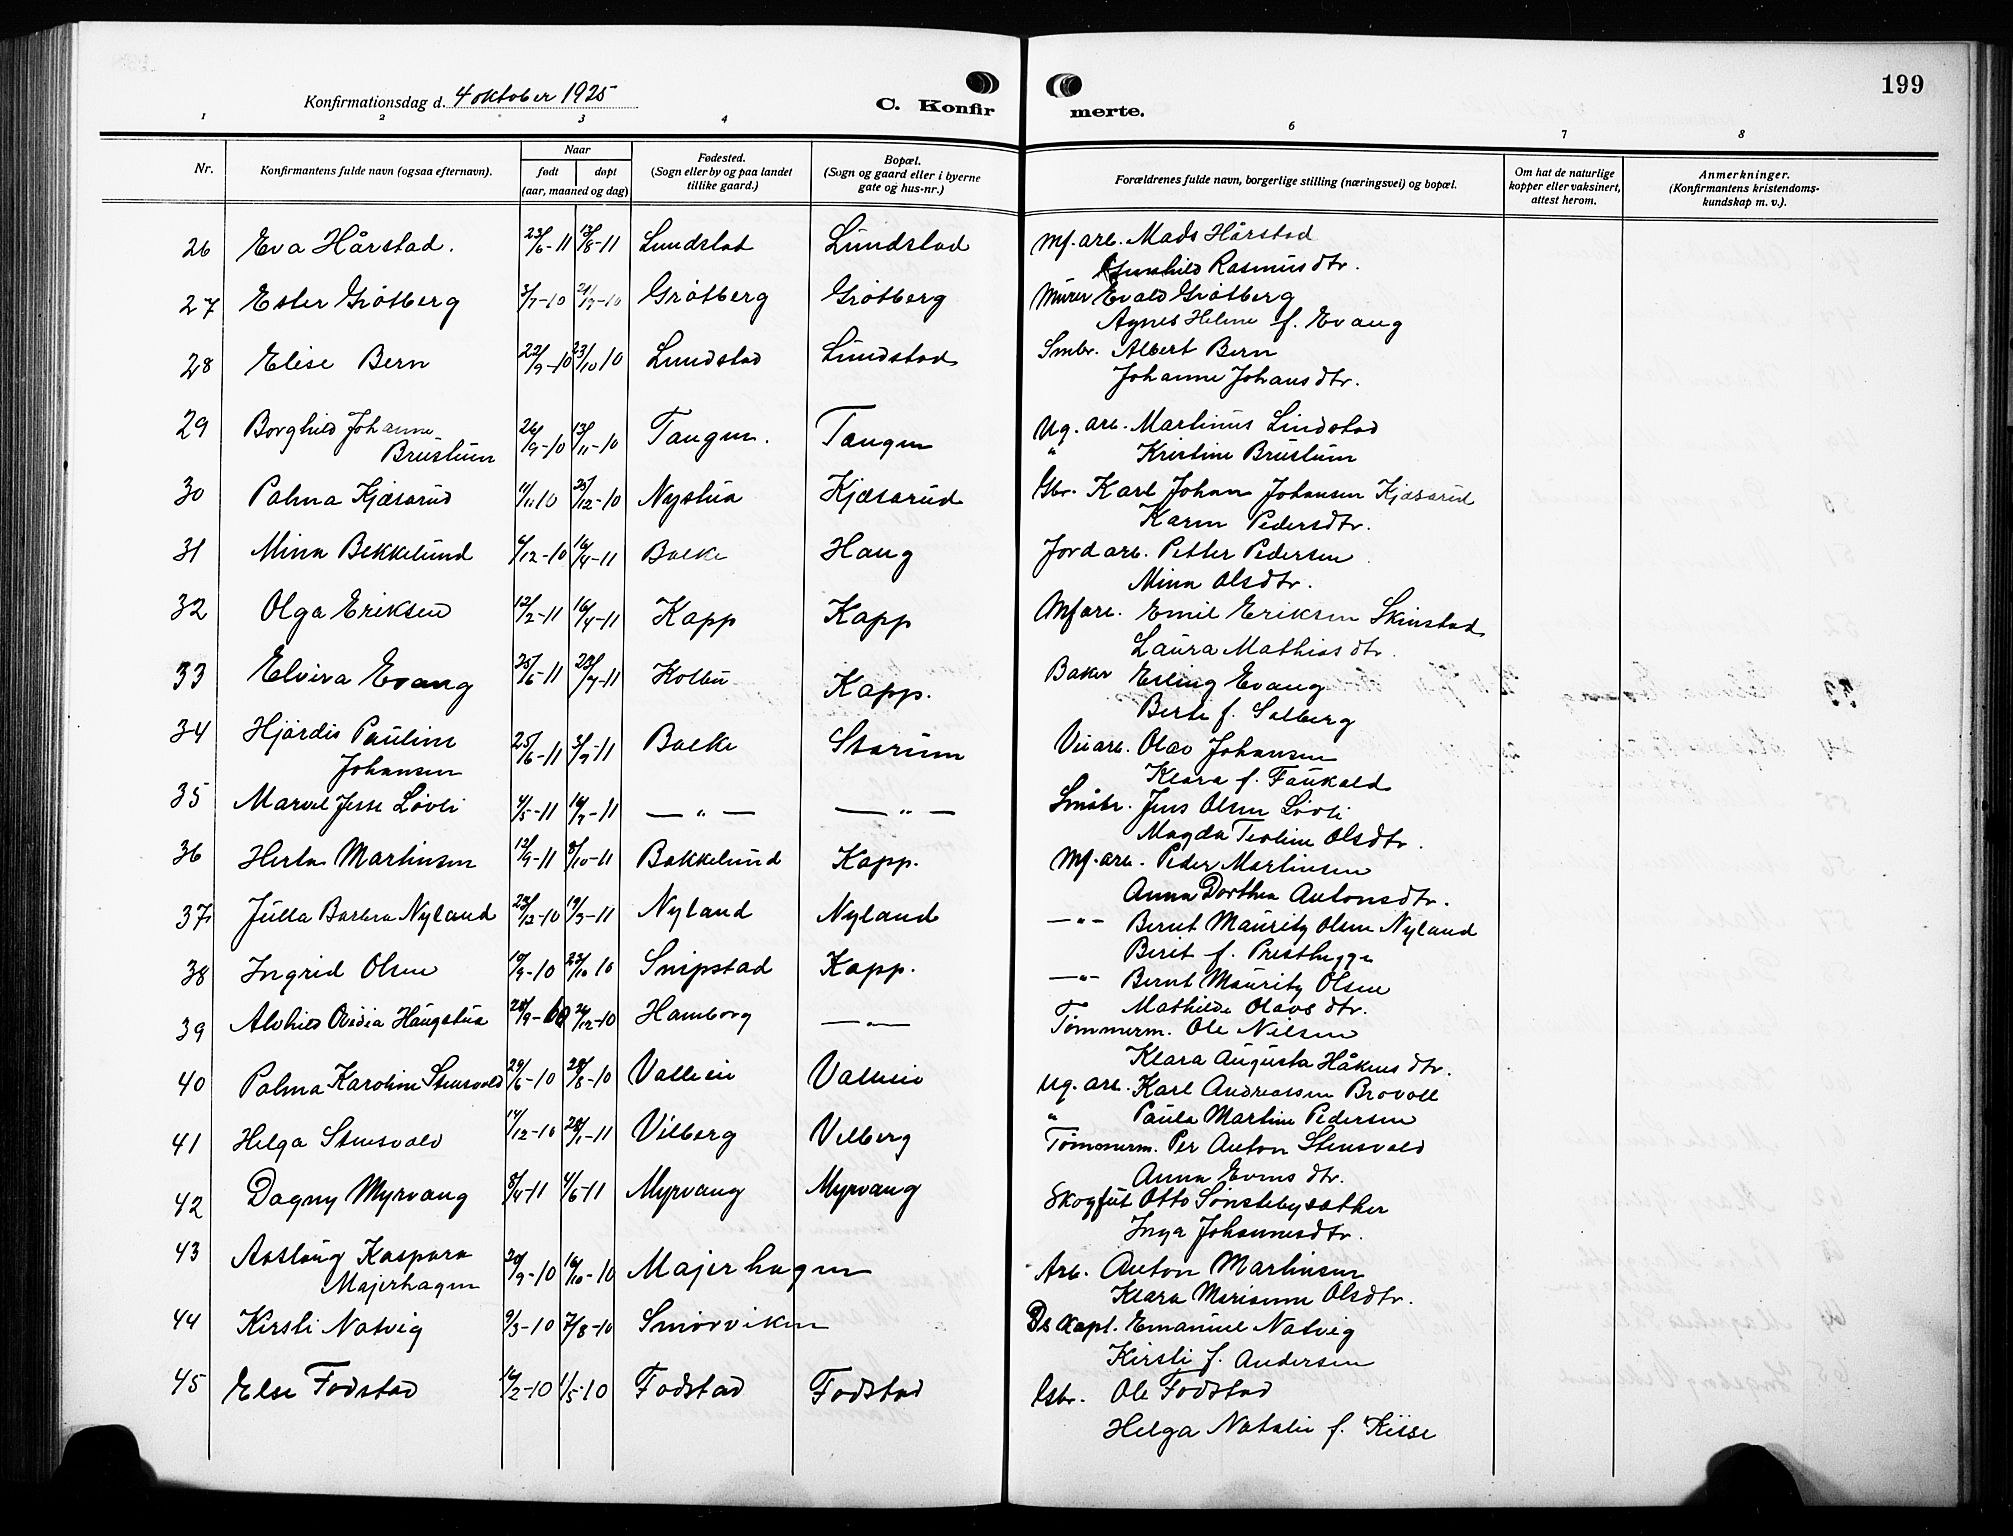 199
Konfirmationsdag d. 4 oktober 1925
C. Konfir merte.
1 2 3 4 6 7 8
Nr.
Konfirmantens fulde navn (ogsaa efternavn).
Naar
født døpt
(aar, maaned og dag)
Fødested.
(Sogn eller by og paa landet
tillike gaard.)
Bopæl.
(Sogn og gaard eller i byerne
gate og hus-nr.)
Forældrenes fulde navn, borgerlige stilling (næringsvei) og bopæl.
Om hat de naturlige
kopper eller vaksinert,
attest herom.
Anmerkninger.
(Konfirmantens kristendoms-
kundskap m. v.).
26 Eva Hårstad. 23/6-11 13/8-11 Lundstad Lundstad Mf. arb. Mads Hårstad
Gunhild Rasmusdtr.
27 Ester Grøtberg 3/7-10 Grøtberg Grøtberg Murer Evald Grøtberg
Agnes Helene f. Evang
28 Elise Bern 22/9-10 23/10 10 Lundstad Lundstad Smbr. Albert Bern
Johanne Johansdtr.
29 Borghild Johanne
Brustuen 26/9-10 13/11-10 Tangen. Tangen Ug. arb. Martinus Lindstad
" Kristine Brustuen
30 Palma Kjæsarud 11/11 10 25/12-10 Nystua Kjæsarud Gbr. Karl Johan Johansen Kjæsarud
Karen Pedersdtr.
31 Mina Bekkelund 6/12-10 16/4-11 Balke Haug Jordarb. Petter Pedersen
Mina Olsdtr.
32 Olga Eriksen 12/2-11 16/4-11 Kapp Kapp Mf arb. Emil Eriksen Skinstad
Laura Mathiasdtr.
33 Elvira Evang 25/6-11 23/7-11 Kolbu Kapp. Baker Erling Evang
Berte f. Solberg
34 Hjørdis Pauline
Johansen 25/6-11 3/9-11 Balke Starum Veiarb. Olav Johansen
Klara f. Faukald
35 Marvel Jesse Løvli 4/5-11 16/7-11 — " — — " — Småbr. Jens Olsen Løvli
Magda Teoline Olsdtr.
36 Herta Martinsen 12/9-11 8/10-11 Bakkelund Kapp. Mf. arb. Peder Martinsen
Anna Dorthea Antonsdtr.
37 Julla Barbra Nyland 23/12-10 19/3-11 Nyland Nyland — " — Bernt Mauritz Olsen Nyland
Berit f. Presthygge
38 Ingrid Olsen 19/9-10 23/10 10 Snipstad Kapp. — " — Bernt Mauritz Olsen
Mathilde Olavsdtr.
39 Alvhild Ovidia Haugstua 28/9-10 26/12-10 Hamborg — " — Tømmerm. Ole Nilsen
Klara Augusta Håkensdtr.
40 Palma Karoline Stensvold 29/6-10 28/8-10 Valleie Valleie Ug. arb. Karl Andreassen Brovoll
" Paula Martine Pedersen
41 Helga Stensvold 14/12-10 28/1-11 Vilberg Velberg Tømmerm. Per Anton Stensvold
Anna Evensdtr.
42 Dagny Myrvang 8/4-11 4/6-11 Myrvang Myrvang Skogfut Otto Sønstebysæther
Inga Johannesdtr.
43 Aaslaug Kaspara
Majerhagen 20/9-10 16/10-10 Majerhagen Arb. Anton Martinsen
Klara Marienne Olsdtr.
44 Kirsti Natvig 9/3-10 7/8-10 Smørviken Ds kapt. Emanuel Natvig
Kirsti f. Andersen
45 Else Fodstad 16/2-10 1/5-10 Fodstad Fodstad Gbr. Ole Fodstad
Helga Natalie f. Kiese